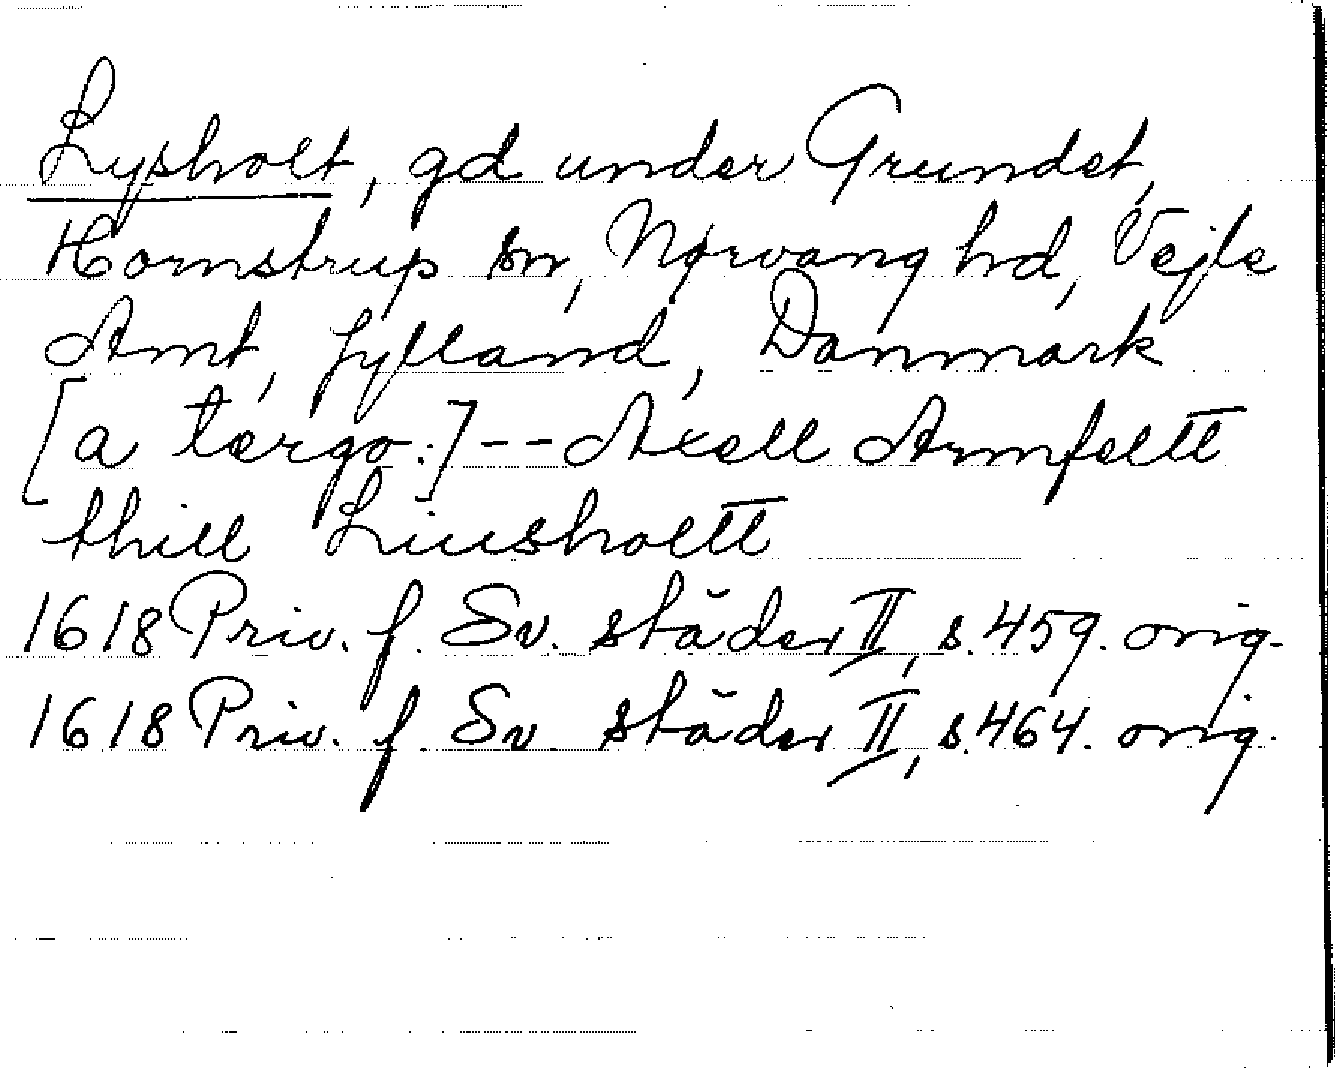 Lysholt, gd under Grundet,
Hornstrup sn, Nørvang hrd, Vejle
Amt, Jylland, Danmark
[a tergo:] -- Axell Armfeltt
thill Liusholtt
1618 Priv. f. Sv. städer II, s. 459. orig.
1618 Priv. f. Sv städer II, s. 464. orig.